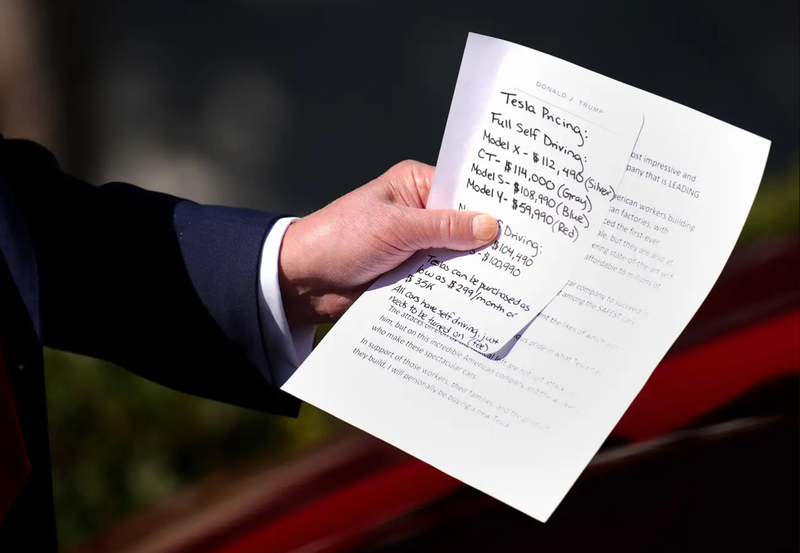 DONALD J. TRUMP
Tesla Pricing:
Full Self Driving:
Model X - $112,490 (Silver)
CT - $114,000 (Gray)
Model S - $108,990 (Blue)
Model Y - $59,990 (Red)
Driving:
$104,490
- $100,990
Teslas can be purchased as
low as $299/month or
$35K
All cars have self driving, just
needs to be turned on (fee)
ost impressive and
pany that is LEADING
erican workers building
an factories, with
ced the first-ever
ale, but they are also at
ering state-of-the-art self
affordable to millions of
at company to succeed in
among the SAFEST cars
nt the likes of which our
us pride in what Tesla has
The attacks on
are not just attacks on
him, but on this incredible American company, and the workers
who make these spectacular cars.
In support of those workers, their families, and the product
they build, I will personally be buying a new Tesla